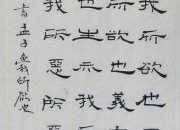 我所欲也
所欲也義
也生亦我所
我所惡所惡
孟子魚我所欲也